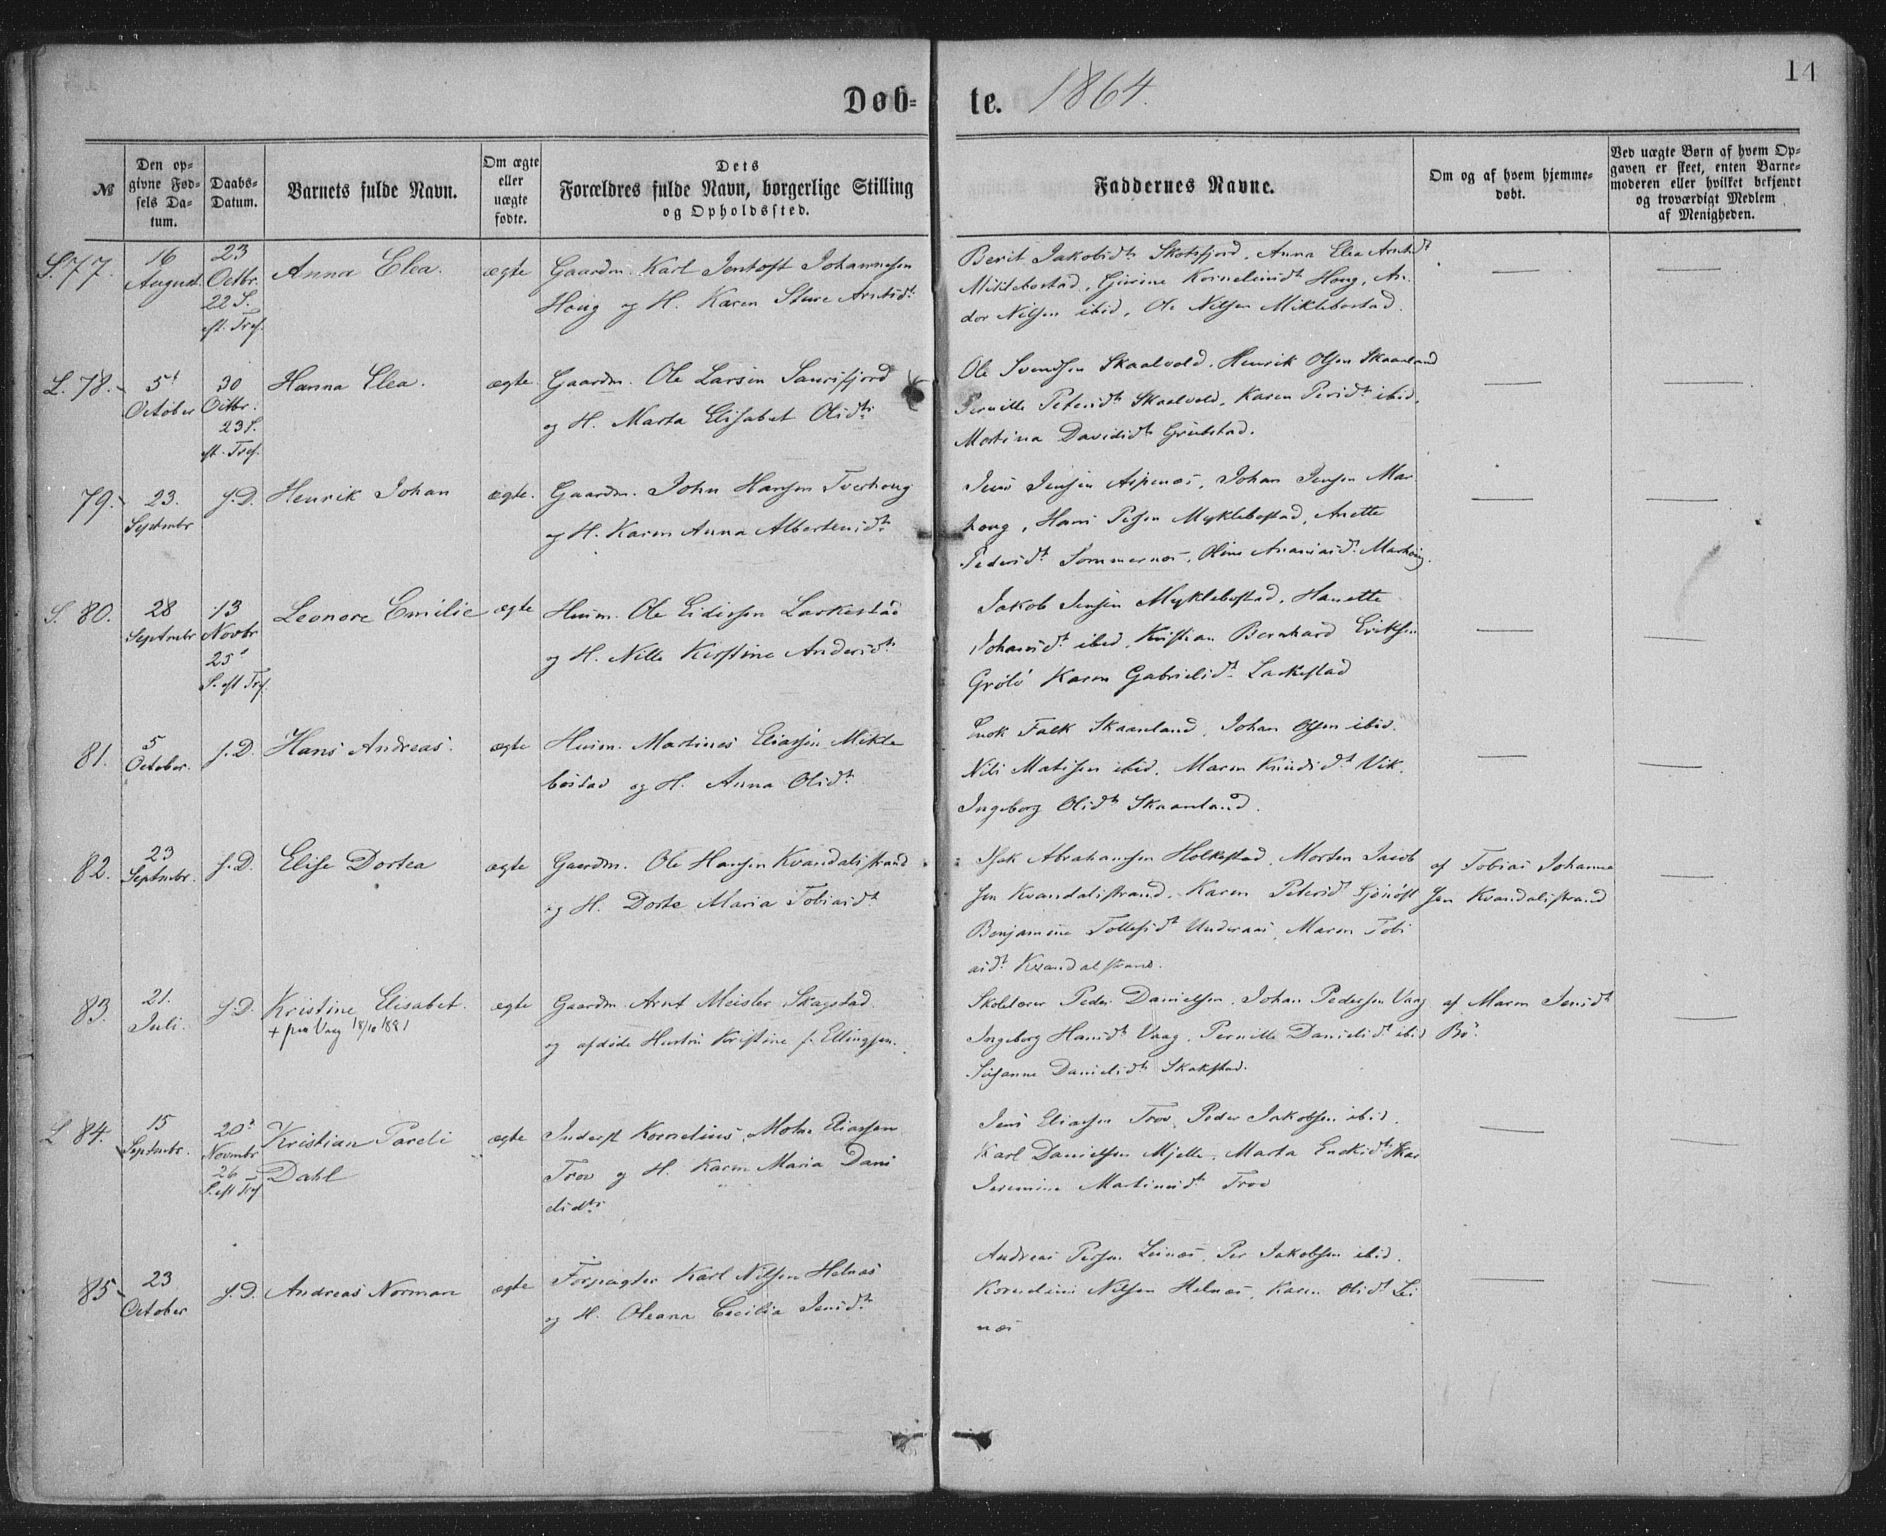 Døb-
te. 1864.
14
№
Den op-
givne Fød-
sels Da-
tum.
Daabs-
Datum.
Barnets fulde Navn.
Om ægte
eller
uægte
fødte.
Dets
Forældres fulde Navn, borgerlige Stilling
og Opholdssted.
Faddernes Navne.
Om og af hvem hjemme-
døbt.
Ved uægte Børn af hvem Op-
gaven er skeet, enten Barne-
moderen eller hvilket bekjendt
og troværdigt Medlem
af Menigheden.
S. 77.
16
August.
23
Octbr.
22 S.
eft. Tref.
Anna Elea.
ægte
Gaardm. Karl Jentoft Johannesen
Houg og H. Karen Sture Arntsdt.
Berit Jakobsdt Skotsfjord, Anna Elea Arntsdt
Miklebostad, Gurine Korneliusdt Houg, An-
dor Nilsen ibid, Ole Nilsen Miklebostad.
L. 78.
5t
October
30
Octbr.
23 S.
eft. Tref.
Hanna Elea.
ægte.
Gaardm. Ole Larsen
og H. Marta Elisabet Olsdtr
Ole Svendsen Skaalvold, Henrik Olsen Skaanland
Pernille Petersdt Skaalvold, Karen Persdt ibid,
Martina Davidsdt Grubstad.
79.
23.
Septmbr
s. D.
Henrik Johan
ægte.
Gaardm. John Hansen Tverhoug
og H. Karen Anna Albertsdt.
Jens Jensen Aspenæs, Johan Jensen Mar
houg, Hans Myklebostad, Anette
Pedersdt Sommernæs, Oline Ananiasdt Marhoug.
S. 80.
28
Septmbr
13
Novbr
25
S. eft Tref.
Leonore Emilie
ægte
Husm. Ole Eidissen Laskestad
og H. Nille Kirstine Andersdt.
Jakob Jensen Myklebostad, Hanette
Johansdt ibid, Kristian Bernhard Eriksen
Grölö Karen Gabrielsdt Laskestad
81.
5
October.
s. D.
Hans Andreas.
ægte
Husm. Martines Eliassen Mikle
bostad og H. Anna Olsdt.
Enok Falk Skaanland, Johan Olsen ibid.
Nils Matisen ibid, Maren Knudsdt Vik,
Ingeborg Olsdt Skaanland.
82.
23
Septmbr.
s. D.
Elise Dortea
ægte
Gaardm. Ole Hansen Kvandalsstrand
og H. Dorte Maria Tobiasdt.
Isak Abrahamsen Holkestad, Morten Jacob
sen Kvandalsstrand, Karen Petersdt
Benjamine Tollefsdt Underaas, Maren Tobi
asdt Kvandalstrand.
af Tobias Johanne
sen Kvandalsstrand
83.
21.
Juli.
s. D.
Kristine Elisabet.
+ paa Vaag 18/10 1881
ægte
Gaardm Arnt Meisler Skagstad
og afdöde Hustru Kristine f. Ellingsen.
Skolelærer Peder Danielsen, Johan Pedersen Vaag
Ingeborg Hansdt Vaag, Pernille Danielsdt ibid
Susanne Danielsdt Skakstad.
af Maren Jensdt
Bö.
L 84.
15
Septmbr.
20d
Novmbr
26
S. eft Tref
Kristian Pareli
Dahl
ægte
Inderst Kornelius Eliassen
Trov og H. Karen Maria Dani
elsdtr
Jens Eliassen Trov, Peder Jakobsen ibid.
Karl Danielsen Mjelle, Marta
Martinusdt Trov
85
23
October
s. D.
Andreas Norman
ægte
Forpagter Karl Nilsen Helnæs
og H. Oleana Cecilia Jensdt.
Andreas Persen Leinæs, Per Jakobsen ibid.
Kornelius Nilsen Helnæs, Karen Olsdt Lei
næs